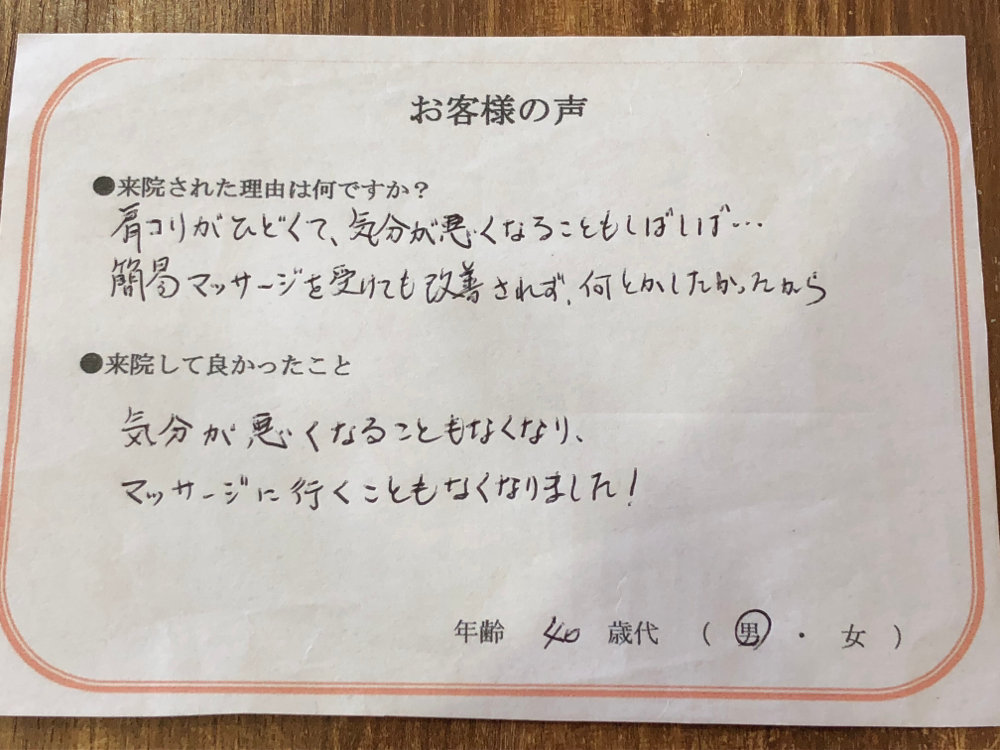 お客様の声
●来院された理由は何ですか？
肩コリがひどくて、気分が悪くなることもしばしば…
簡易マッサージを受けても改善されず、何とかしたかったから
●来院して良かったこと
気分が悪くなることもなくなり、
マッサージに行くこともなくなりました！
年齢 40 歳代 （ 男 ・ 女 ）